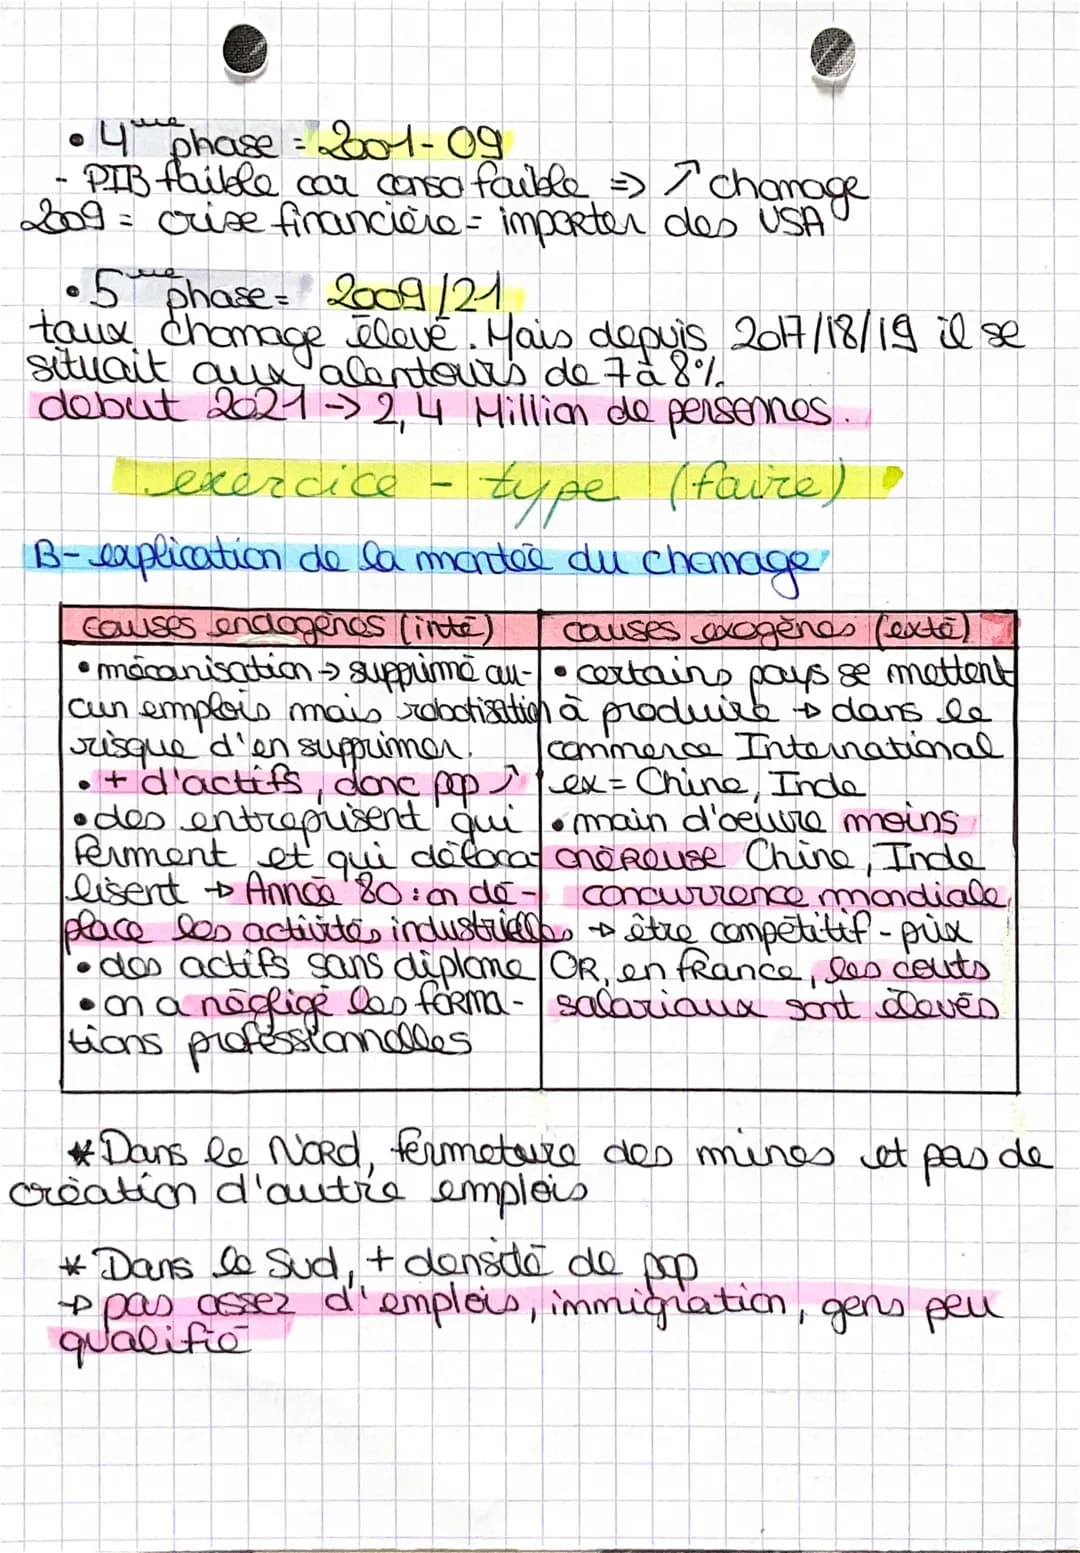 • 4ème phase = 2001-09
- PIB faible car conso faible => ↗ chomage
2009 = crise financière = importer des USA
• 5ème phase = 2009/21
taux chomage élevé. Mais depuis 2017/18/19 il se
situait aux alentours de 7 à 8%.
debut 2021 -> 2,4 Million de personnes.
exercice - type (faire)
B- explication de la montée du chomage
causes endogènes (inté)
• mécanisation -> supprimé au-
cun emplois mais robotisation
risque d'en supprimer.
• + d'actifs, donc pop ↗
• des entreprisent qui
ferment et qui délocal
lisent -> Année 80 : on dé-
place les activités industrielles
• des actifs sans diplome
• on a négligé les forma-
tions professionnelles
causes exogènes (exté)
• certains pays se mettent
à produire -> dans le
commerce International
ex = Chine, Inde
• main d'oeuvre moins
onéreuse Chine, Inde
concurrence mondiale
-> être compétitif - prix
OR, en france, les couts
salariaux sont élevés
* Dans le Nord, fermeture des mines et pas de
création d'autre emplois
* Dans le Sud, + densité de pop
-> pas assez d'emplois, immigration, gens peu
qualifié